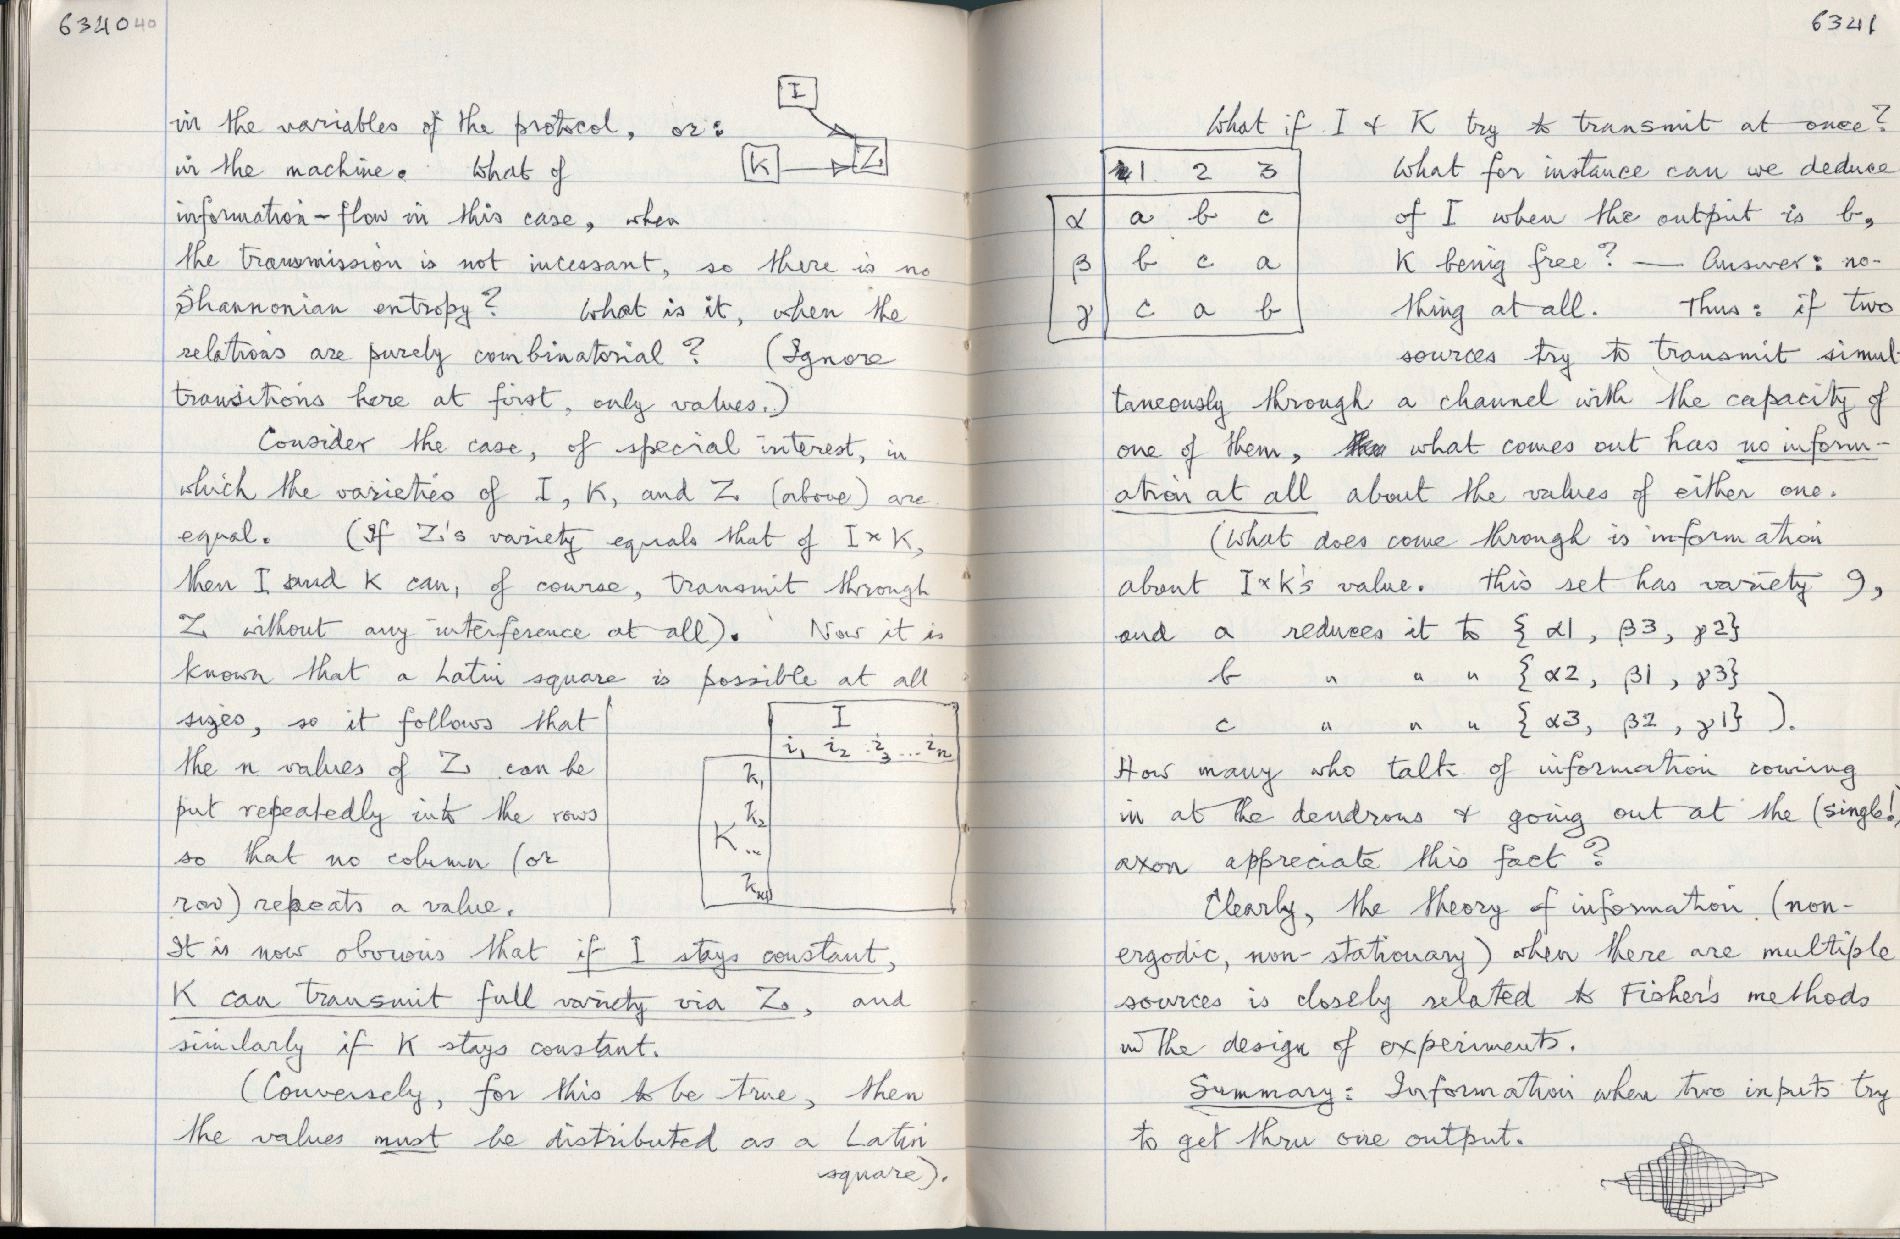 6340 40
in the variables of the protocol, or:
I
in the machine. What of
K Z
information-flow in this case, when
the transmission is not incessant, so there is no
Shannonian entropy? What is it, when the
relations are purely combinatorial? (Ignore
transitions here at first, only values.)
Consider the case, of special interest, in
which the varieties of I, K, and Z (above) are
equal. (If Z's variety equals that of I×K,
then I and K can, of course, transmit through
Z without any interference at all). Now it is
known that a Latin square is possible at all
sizes, so it follows that
the n values of Z can be
put repeatedly into the rows
so that no column (or
row) repeats a value.
I
i1 i2 i3 ... in
k1
k2
K ...
kn
It is now obvious that if I stays constant,
K can transmit full variety via Z, and
similarly if K stays constant.
(Conversely, for this to be true, then
the values must be distributed as a Latin
square).
6341
What if I & K try to transmit at once?
1 2 3
α a b c
β b c a
γ c a b
What for instance can we deduce
of I when the output is b,
K being free? — Answer: no-
thing at all. Thus: if two
sources try to transmit simul
taneously through a channel with the capacity of
one of them, what comes out has no inform-
ation at all about the values of either one.
(What does come through is information
about I×K's value. This set has variety 9,
and a reduces it to {α1, β3, γ2}
b " " " {α2, β1, γ3}
c " " " {α3, β2, γ1} ).
How many who talk of information coming
in at the dendrons & going out at the (single!)
axon appreciate this fact?
Clearly, the theory of information (non-
ergodic, non-stationary) when there are multiple
sources is closely related to Fisher's methods
in the design of experiments.
Summary: Information when two inputs try
to get thru one output.